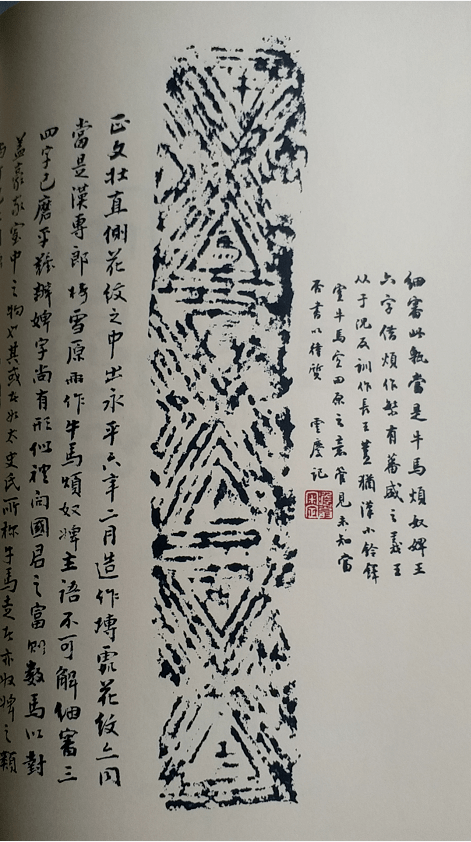 細審此甎當是牛馬煩奴婢王
六字借煩作繁有蕃盛之義王
从于況反訓作長王蓋猶漢小鈴鐸
宜牛馬宜田原之意管見未知當
否書以待質 雲麾記
正文壯直側花紋之中出永平六年二月造作塼花紋同
當是漢專雪原作牛馬煩奴婢主語不可解細審三
四字已磨平難辨婢字尚有形似禮問國君之富則數馬以對
蓋豪家室中之物也其或太史氏所称牛馬走亦奴婢之類